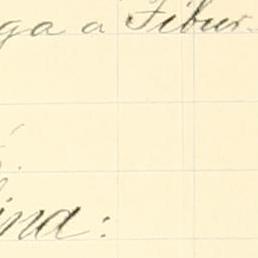 ga a Tibur
ina: